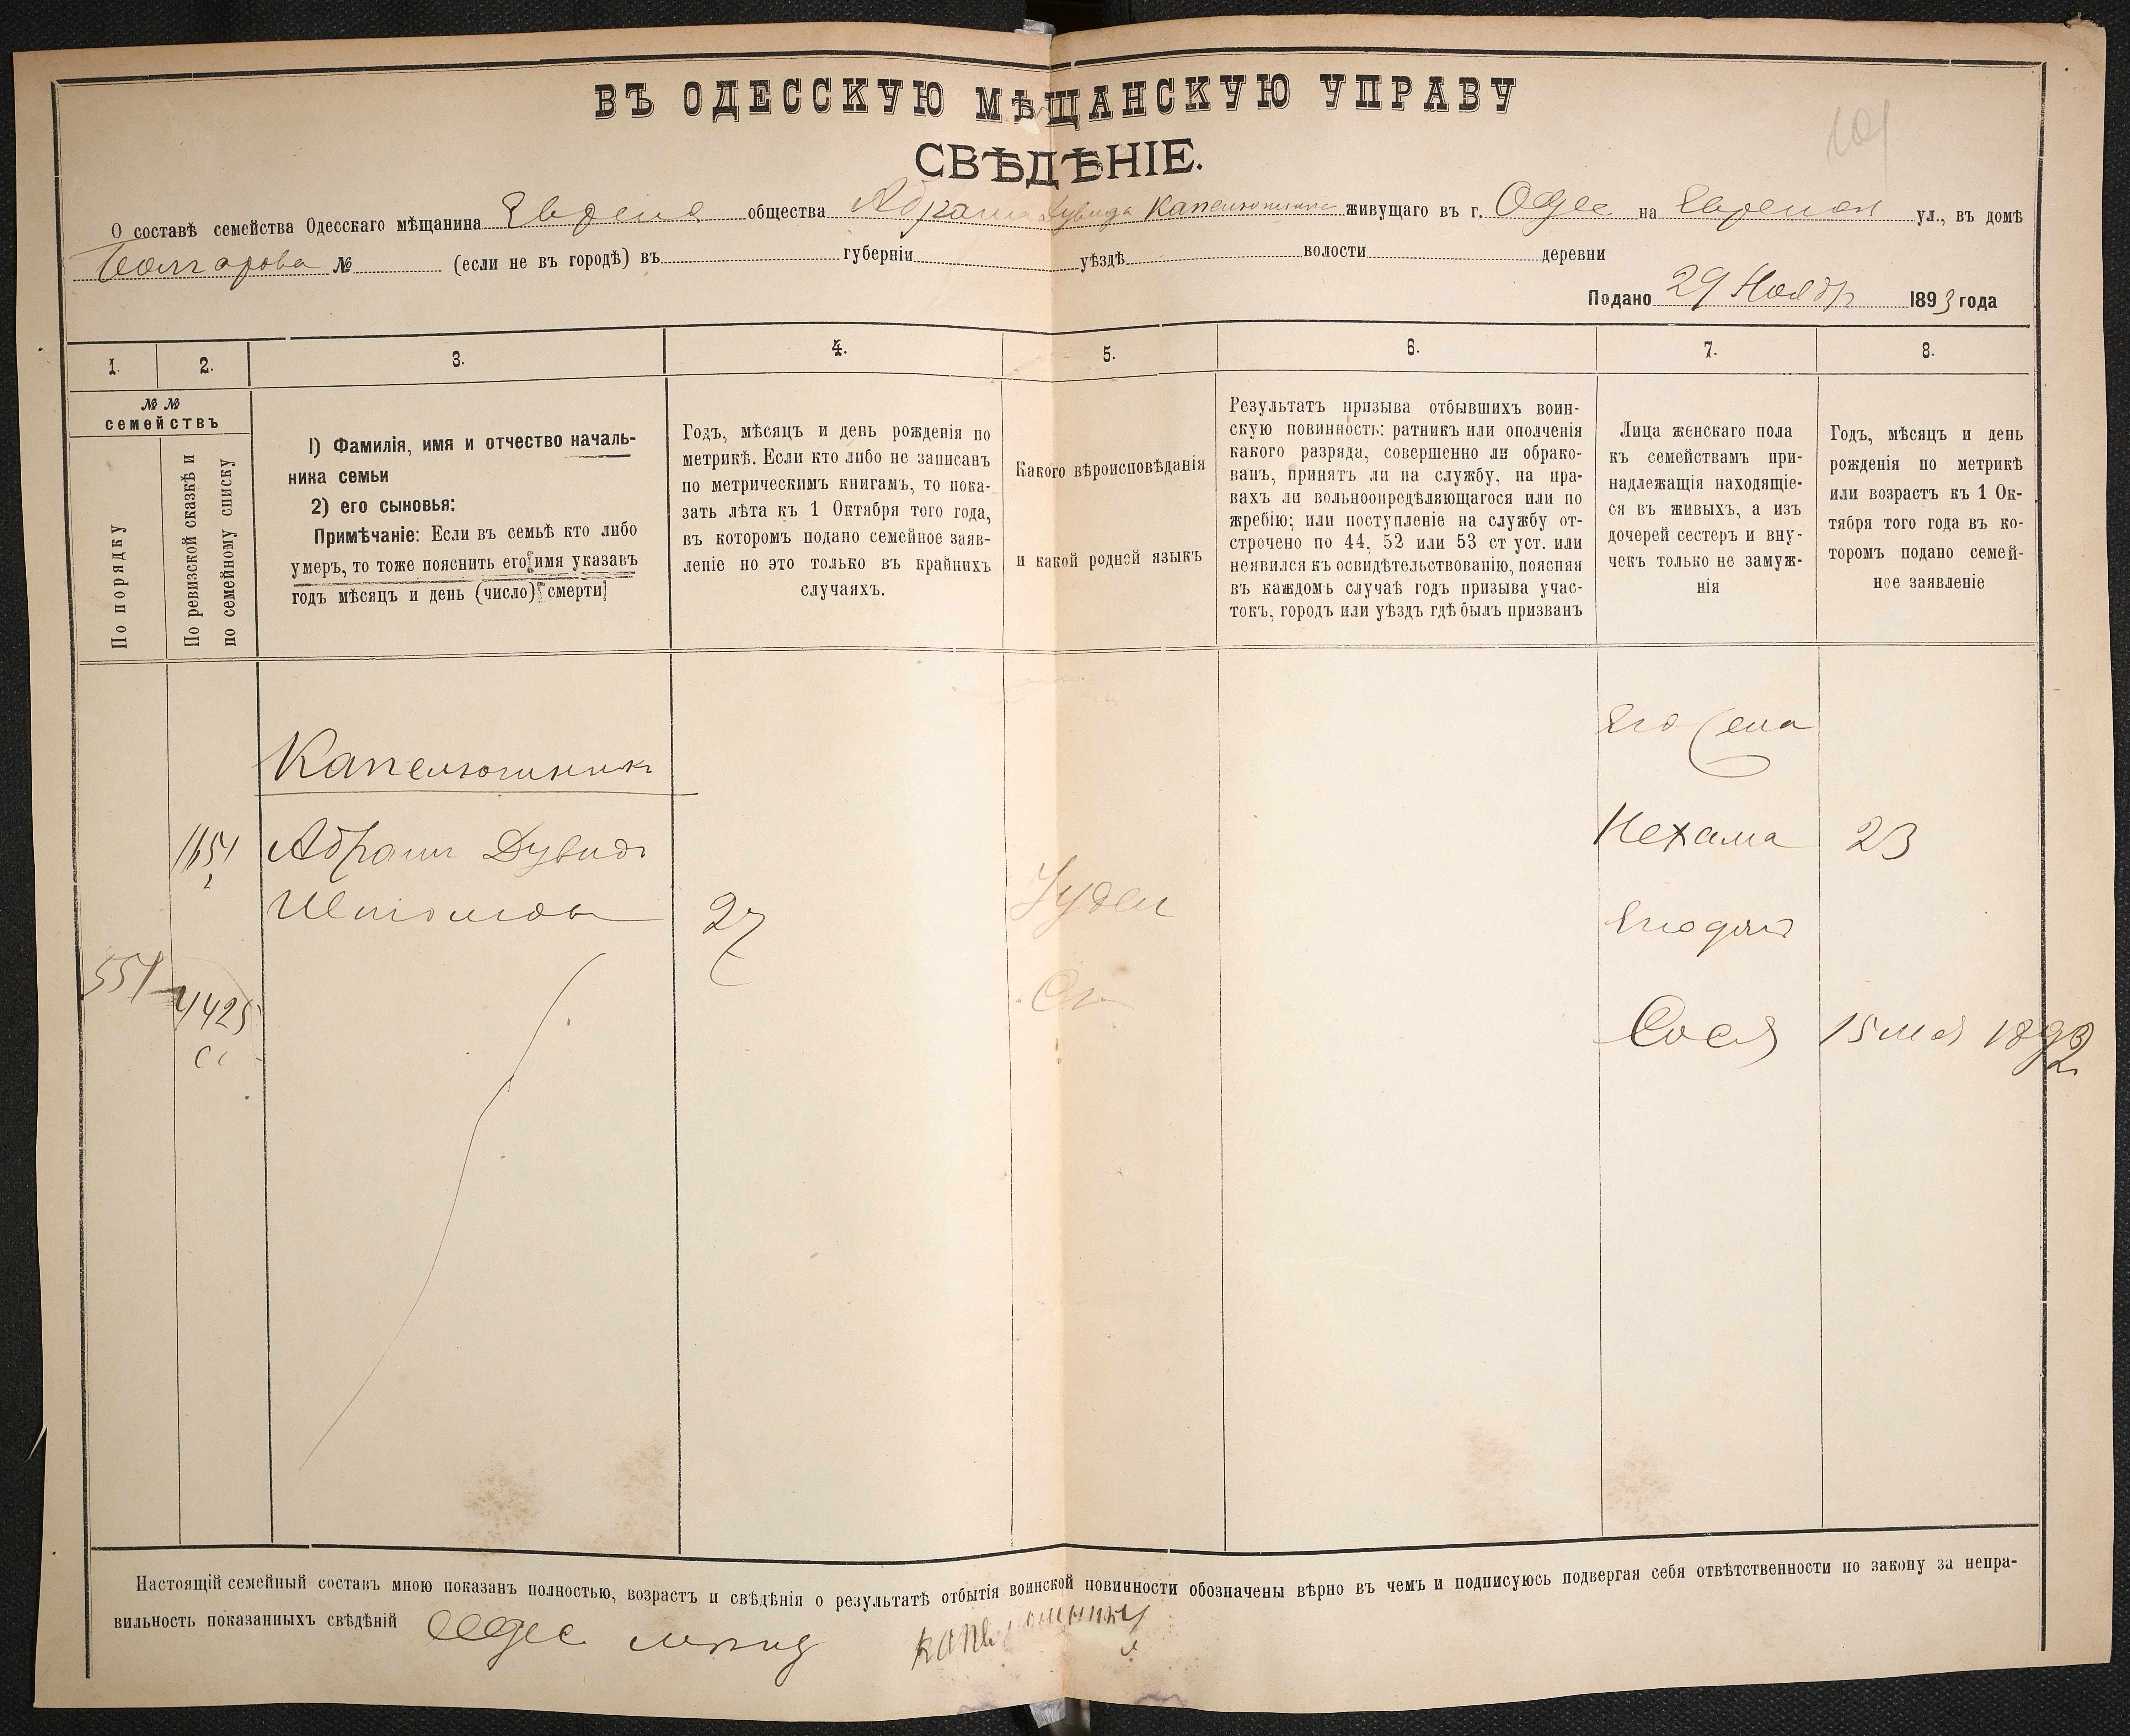 ВЪ ОДЕССКУЮ МѢЩАНСКУЮ УПРАВУ
СВѢДѢНІЕ.
О составѣ семейства Одесскаго мѣщанина общества Абрама Дувида Капелюшника живущаго въ г. Одес на ул., въ домѣ
№ (если не въ городѣ) въ губерніи уѣздѣ волости деревни
Подано 29 Ноябр 1893 года
1. 2. 3. 4. 5. 6. 7. 8.
№ №
семействъ
По порядку
По ревизской сказкѣ и
по семейному списку
1) Фамилія, имя и отчество началь-
ника семьи
2) его сыновья:
Примѣчаніе: Если въ семьѣ кто либо
умеръ, то тоже пояснить его имя указавъ
годъ мѣсяцъ и день (число) смерти
Годъ, мѣсяцъ и день рожденія по
метрикѣ. Если кто либо не записанъ
по метрическимъ книгамъ, то пока-
зать лѣта къ 1 Октября того года,
въ которомъ подано семейное заяв-
леніе но это только въ крайнихъ
случаяхъ.
Какого вѣроисповѣданія
и какой родной языкъ
Результатъ призыва отбывшихъ воин-
скую повинность: ратникъ или ополченія
какого разряда, совершенно ли обрако-
ванъ, принятъ ли на службу, на пра-
вахъ ли вольноопредѣляющагося или по
жребію; или поступленіе на службу от-
строчено по 44, 52 или 53 ст уст. или
неявился къ освидѣтельствованію, поясняя
въ каждомъ случаѣ годъ призыва учас-
токъ, городъ или уѣздъ гдѣ былъ призванъ
Лица женскаго пола
къ семействамъ при-
надлежащія находящіе-
ся въ живыхъ, а изъ
дочерей сестеръ и вну-
чекъ только не замуж-
нія
Годъ, мѣсяцъ и день
рожденія по метрикѣ
или возрастъ къ 1 Ок-
тября того года въ ко-
торомъ подано семей-
ное заявленіе
Его жена
Капелюшник
Нехама 23
1651 Абрам Дувидъ
27 Иудей
551 4425
Сося 15 мая 1892
Настоящій семейный составъ мною показанъ полностью, возрастъ и свѣдѣнія о результатѣ отбытія воинской повинности обозначены вѣрно въ чемъ и подписуюсь подвергая себя отвѣтственности по закону за непра-
вильность показанныхъ свѣдѣній